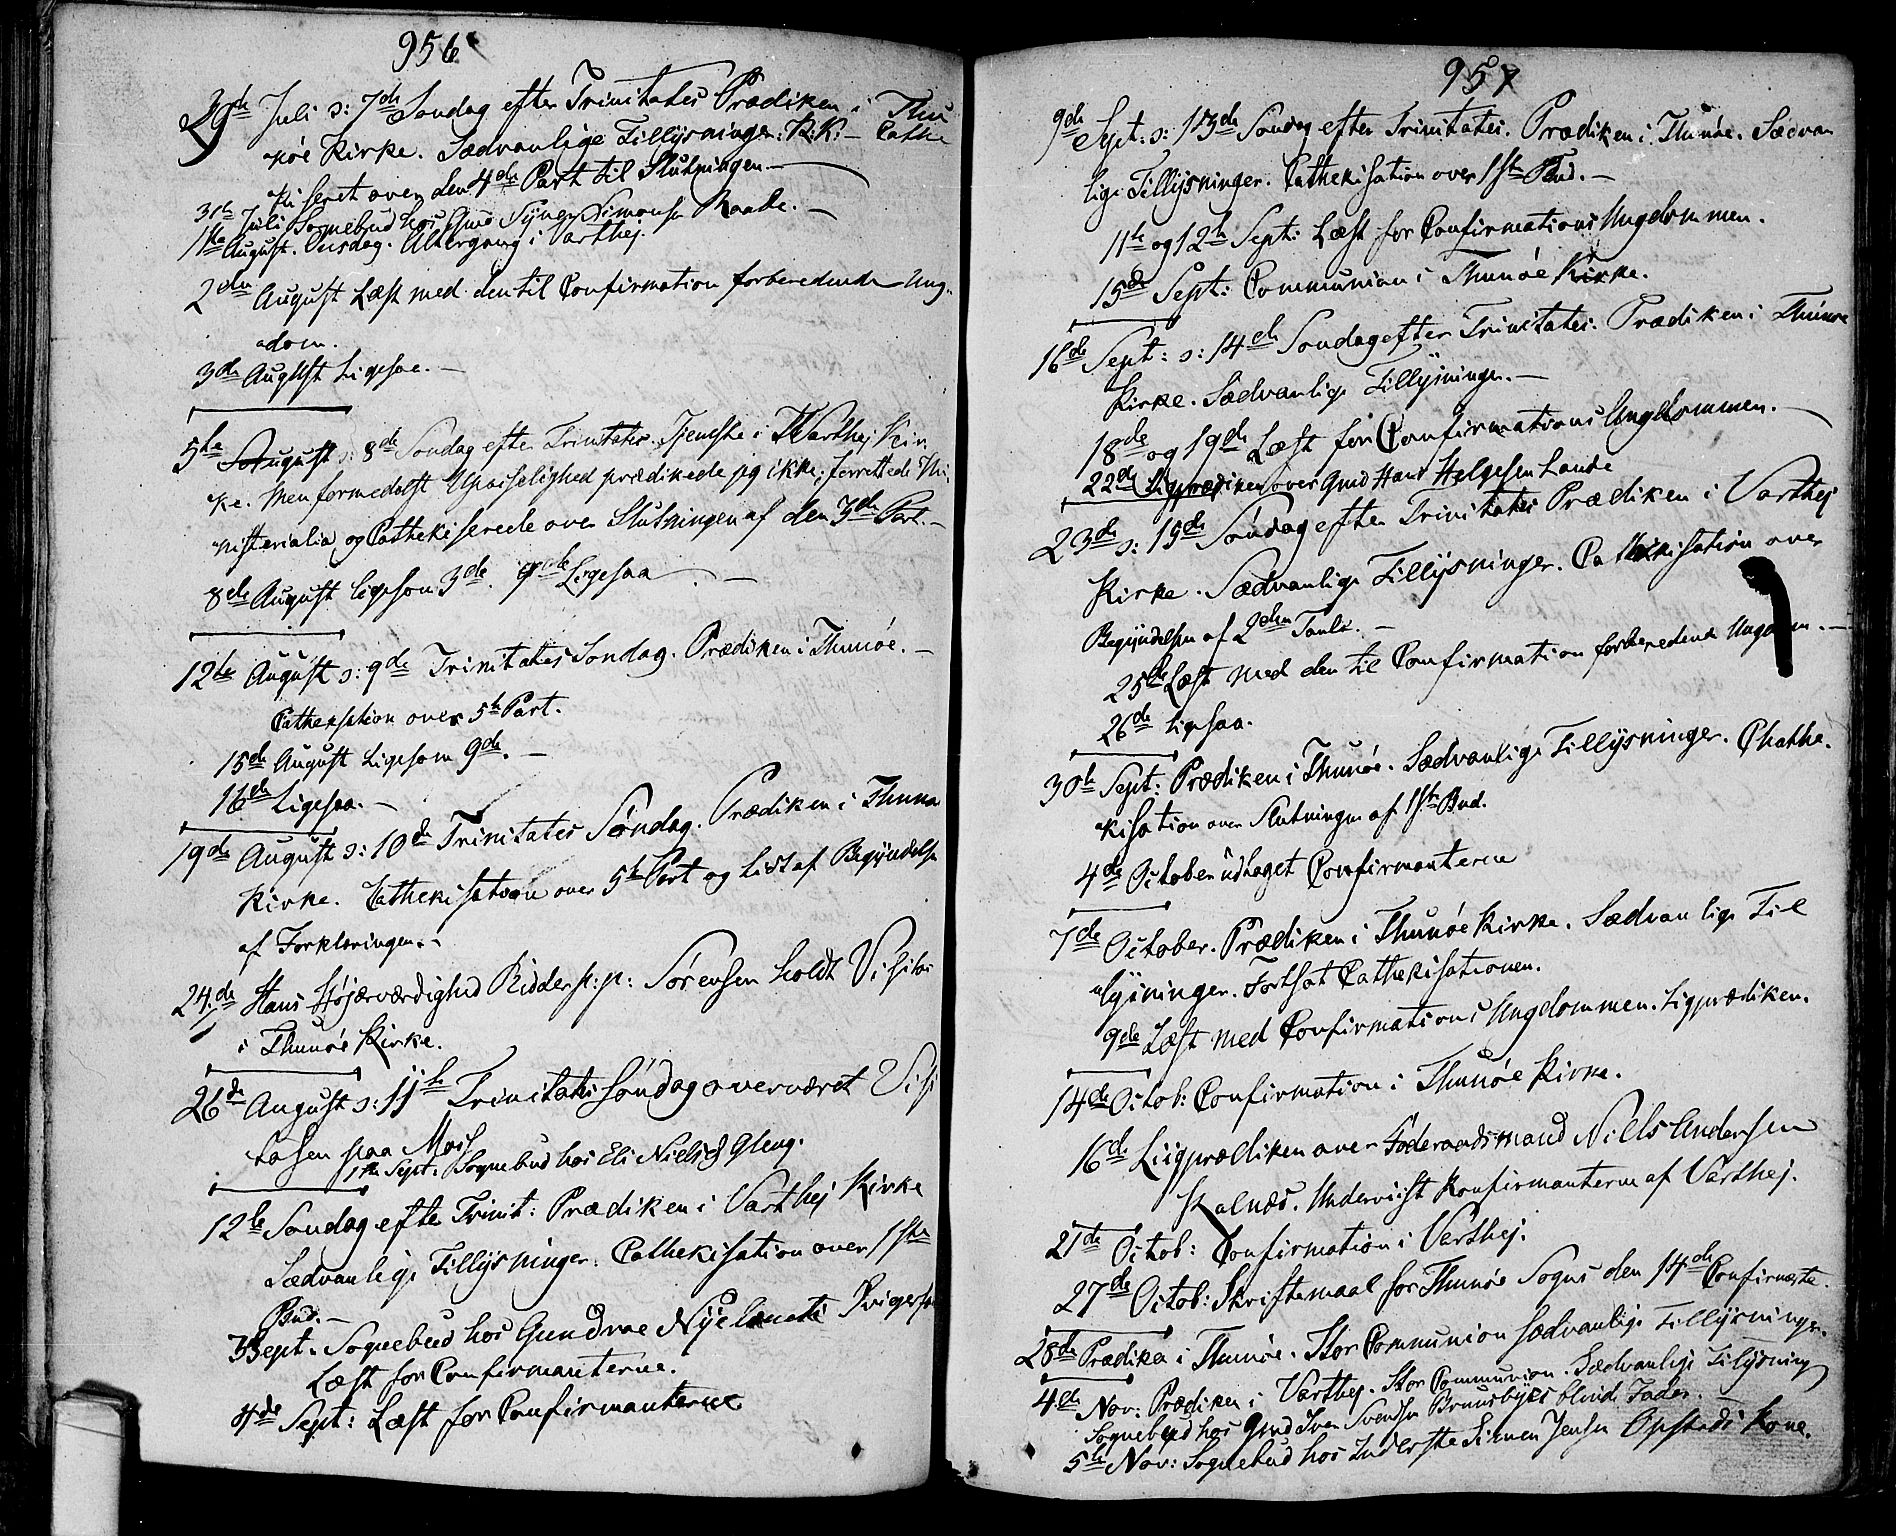 956
Juli ɔ: 7de Søndag efter Trinitates Prædiken i Thu
nøe Kirke. Sædvanlige Tillysninger. K: K: – Cathe
ki seret over den 4de Part til Slutningen. –
31te Juli Sognebud hos Simonsen Raade. –
1ste August. Onsdag. Altergang i Varthej.
2den August Læst med den til Confirmation forberedende Ung-
dom.
3de August Ligesaa. –
5te August ɔ: 8de Søndag efter Trinitates. Tjeneste i Warthej Kir
ke. Men formedelst Upasselighed prædikede jeg ikke; forrettede Mi
nisterialia og Cathekiserede over Slutningen af den 3de Part. –
8de August ligesom 3de. 9de Ligesaa. –
12te August ɔ: 9de Trinitates Søndag. Prædiken i Thunøe. –
Cathesation over 5te Part.
15de August Ligesom 9de. –
16de Ligesaa. –
19de August ɔ: 10de Trinitates Søndag. Prædiken i Thunøe
Kirke. Cathekisation over 5te Part og Lidt af Begyndelsen
af Forklaringen. –
24de Hans Højærværdighed Ridder p: p: Sørensen holdt Visitas
i Thunøe Kirke.
26de August ɔ: 11te Trinitates Søndag overværet Visi
tasen paa Moss
1ste Sept: Sognebud hos Eli Nielsd Gleng.
12te Søndag efter Trinit: Prædiken i Varthej Kirke
Sædvanlige Tillysninger. Cathekisation over 1ste
Bud. –
3 Sept. Sognebud hos Gundroe
Læst for Confirmanterne.
4de Sept: Læst for Confirmanterne
957
9de Sept: ɔ: 13de Søndag efter Trinitates. Prædiken i Thunøe. Sædvan
lige Tillysninger. Cathekisation over 1ste Bud. –
11te og 12te Sept: Læst for Confirmations Ungdommen.
15de Sept: Communion i Thunøe Kirke.
16de Sept: ɔ: 14de Søndag efter Trinitates. Prædiken i Thunøe
Kirke. Sædvanlige Tillysninger. –
18de og 19de Læst for Confirmations Ungdommen.
22de Ligprædiken over Gmd Hans Helgesen Lande
23de ɔ: 15de Søndag efter Trinitates Prædiken i Varthej
Kirke. Sædvanlige Tillysninger. Cathekisation over
Begyndelsen af 2den Tavle. –
25de Læst med den til Confirmation forberedende Ungdom. –
26de Ligesaa.
30te Sept: Prædiken i Thunøe. Sædvanlige Tillysninger. Chathe-
kisation over Slutningen af 1ste Bud.
4de October udtaget Confirmanterne
7de October. Prædiken i Thunøe Kirke. Sædvanlige Til
lysninger. Fortsat Cathekisationen.
9de Læst med Confirmations Ungdommen. Ligprædiken.
14de Octob: Confirmation i Thunøe Kirke.
16de Liigprædiken over Føderaadsmand Niels Andersen
Kalnæs. Underviist Konfirmanterne af Varthej.
21de Octob: Confirmation i Varthej.
27de Octob: Skriftemaal for Thunøe Sogns den 14de Confirmerte.
28de Prædiken i Thunøe. Stor Communion sædvanlige Tillysninger.
4de Nov: Prædiken i Varthej. Stor Communion. Sædvanlige Tilysning
Sognebud hos Gmd Iver Svendsen Brunsbyes blinde Fader.
5te Nov: Sognebud hos Inderste Simen Jensen Opstads Kone.